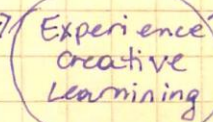 Experience
creative
Leornining